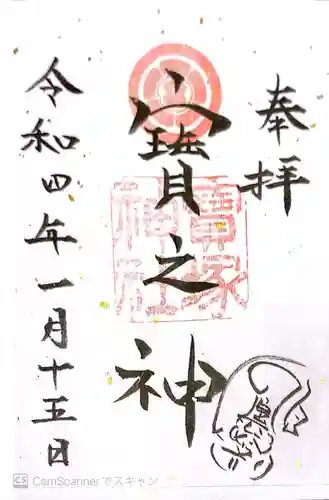 奉拝
寳之神
令和四年一月十五日
CS CamScanner でスキャン